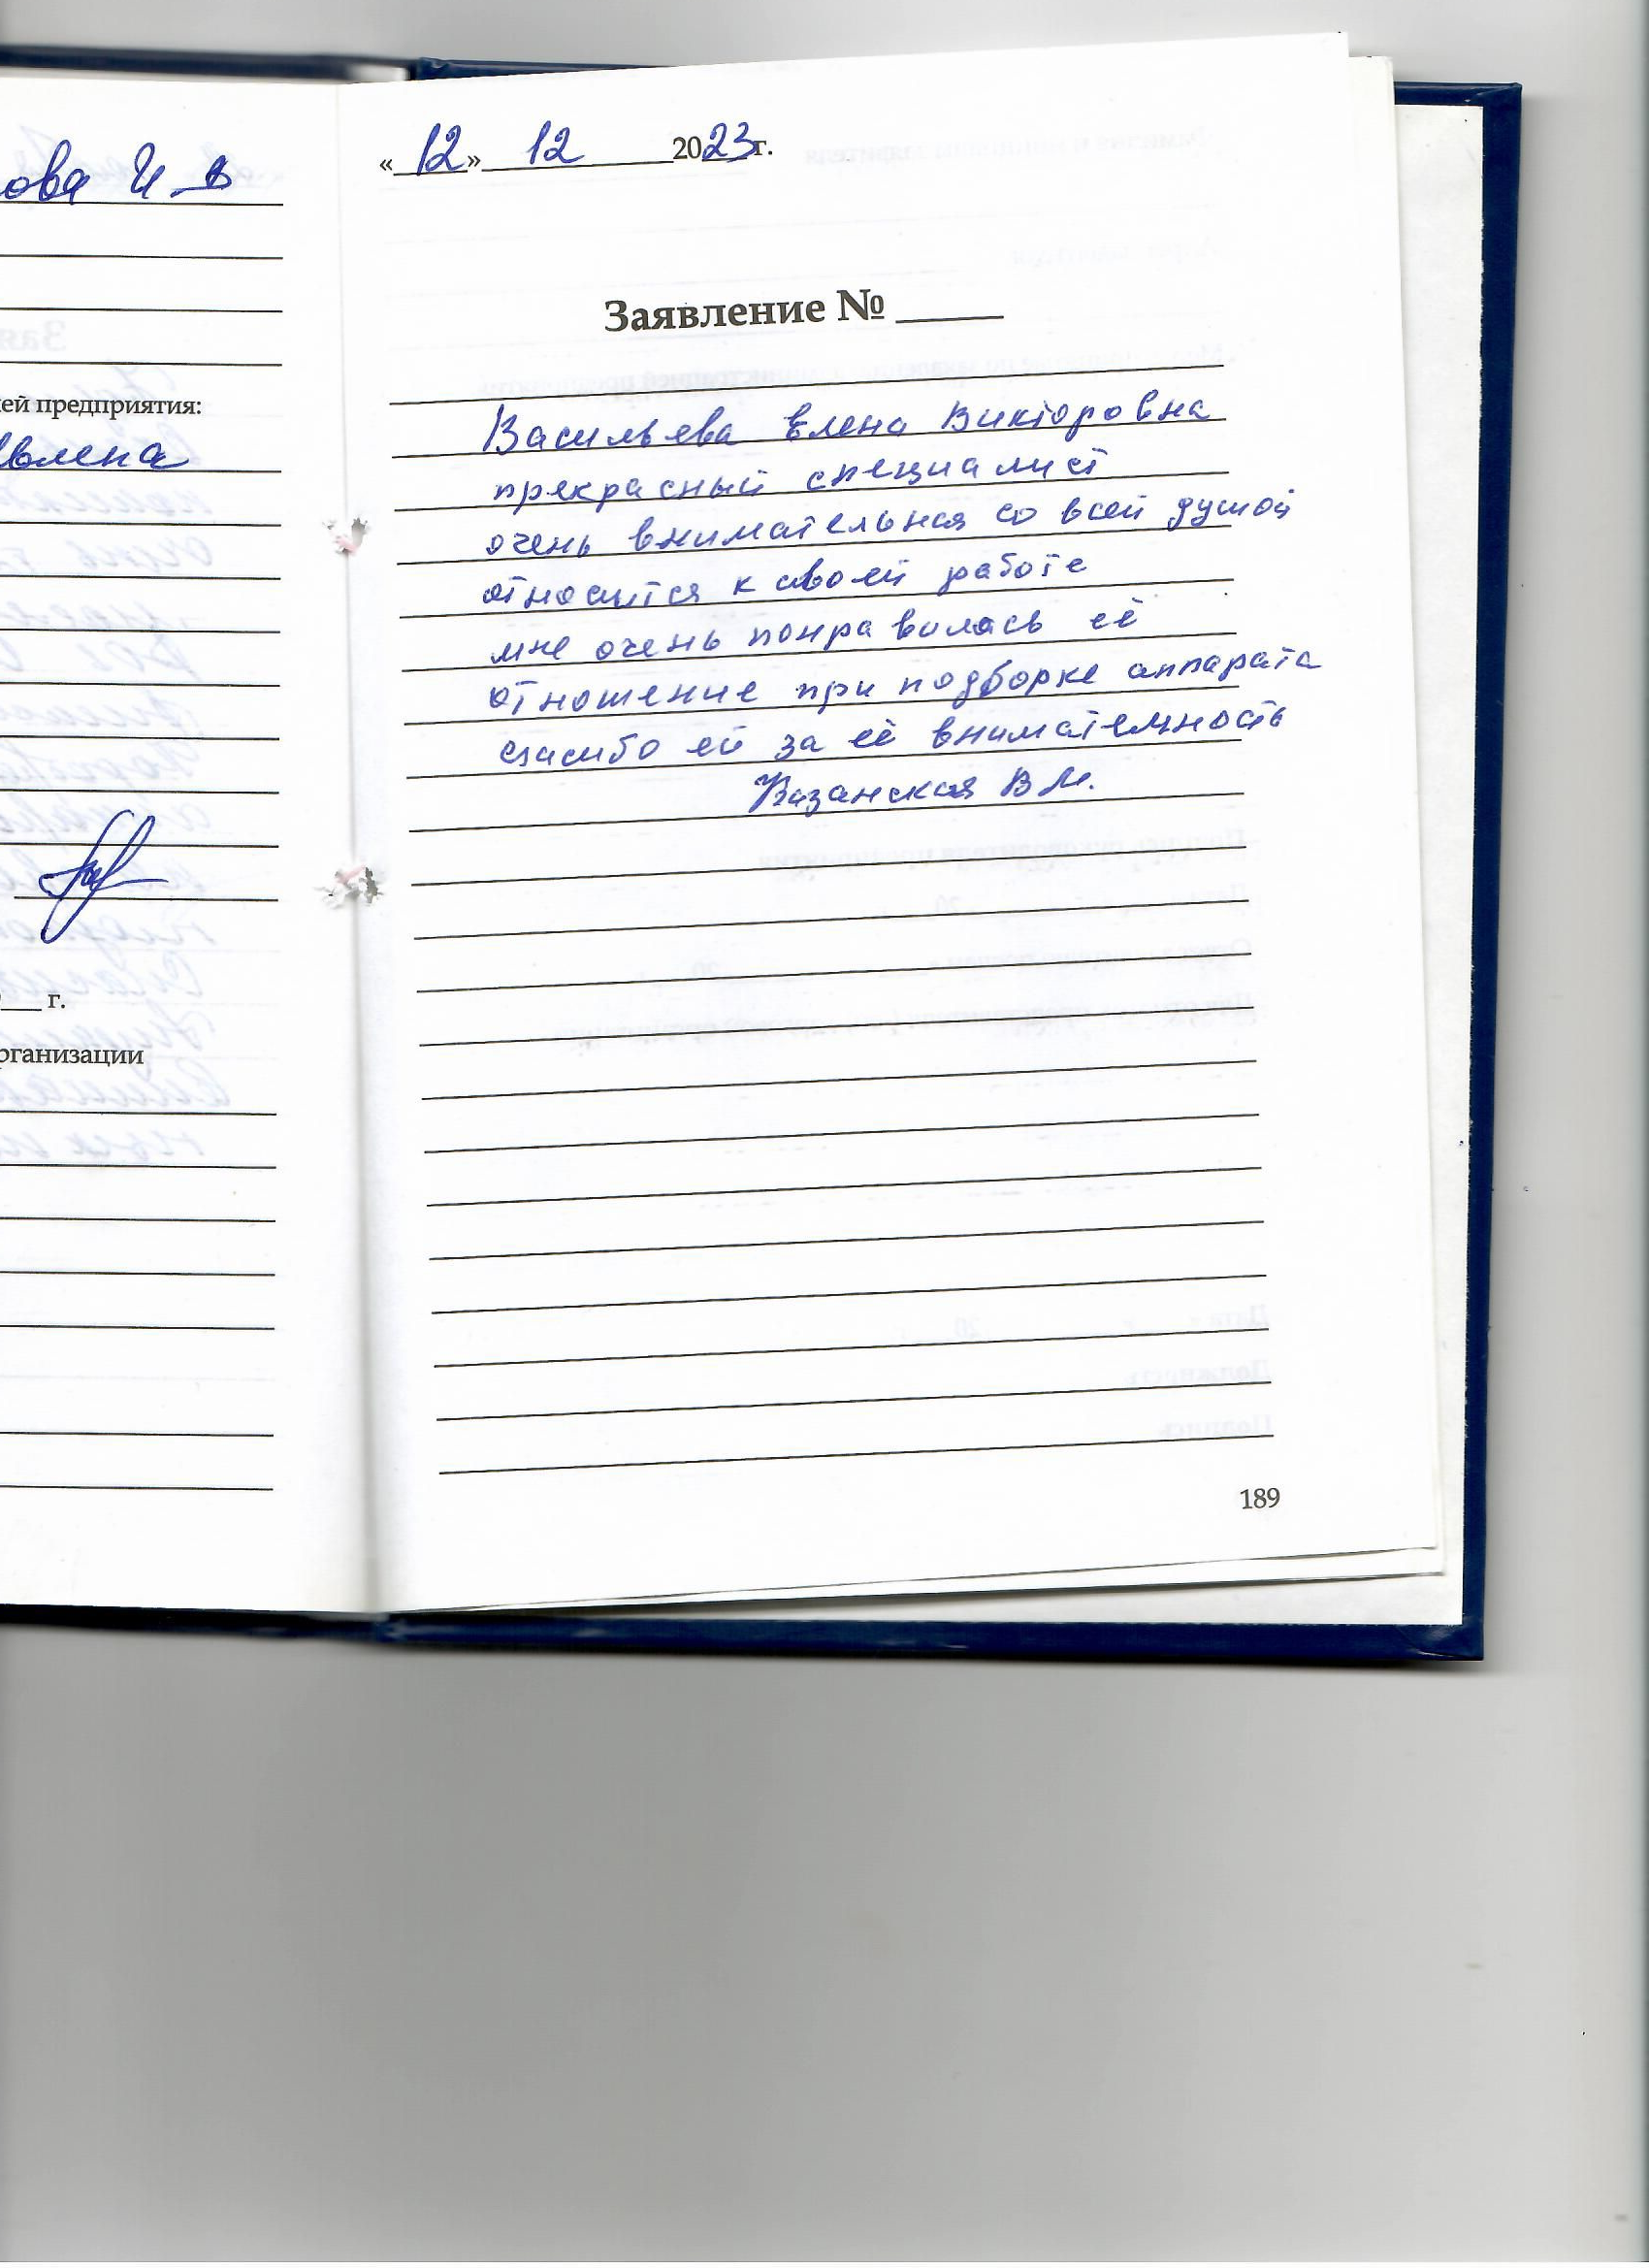 ова И В
ей предприятия:
влена
г.
рганизации
«12» 12 2023г.
Заявление №
Васильева Елена Викторовна
прекрасный специалист
очень внимательная со всей душой
относится к своей работе
мне очень понравилось её
отношение при подборке аппарата
спасибо ей за её внимательность
Казанская В М.
189